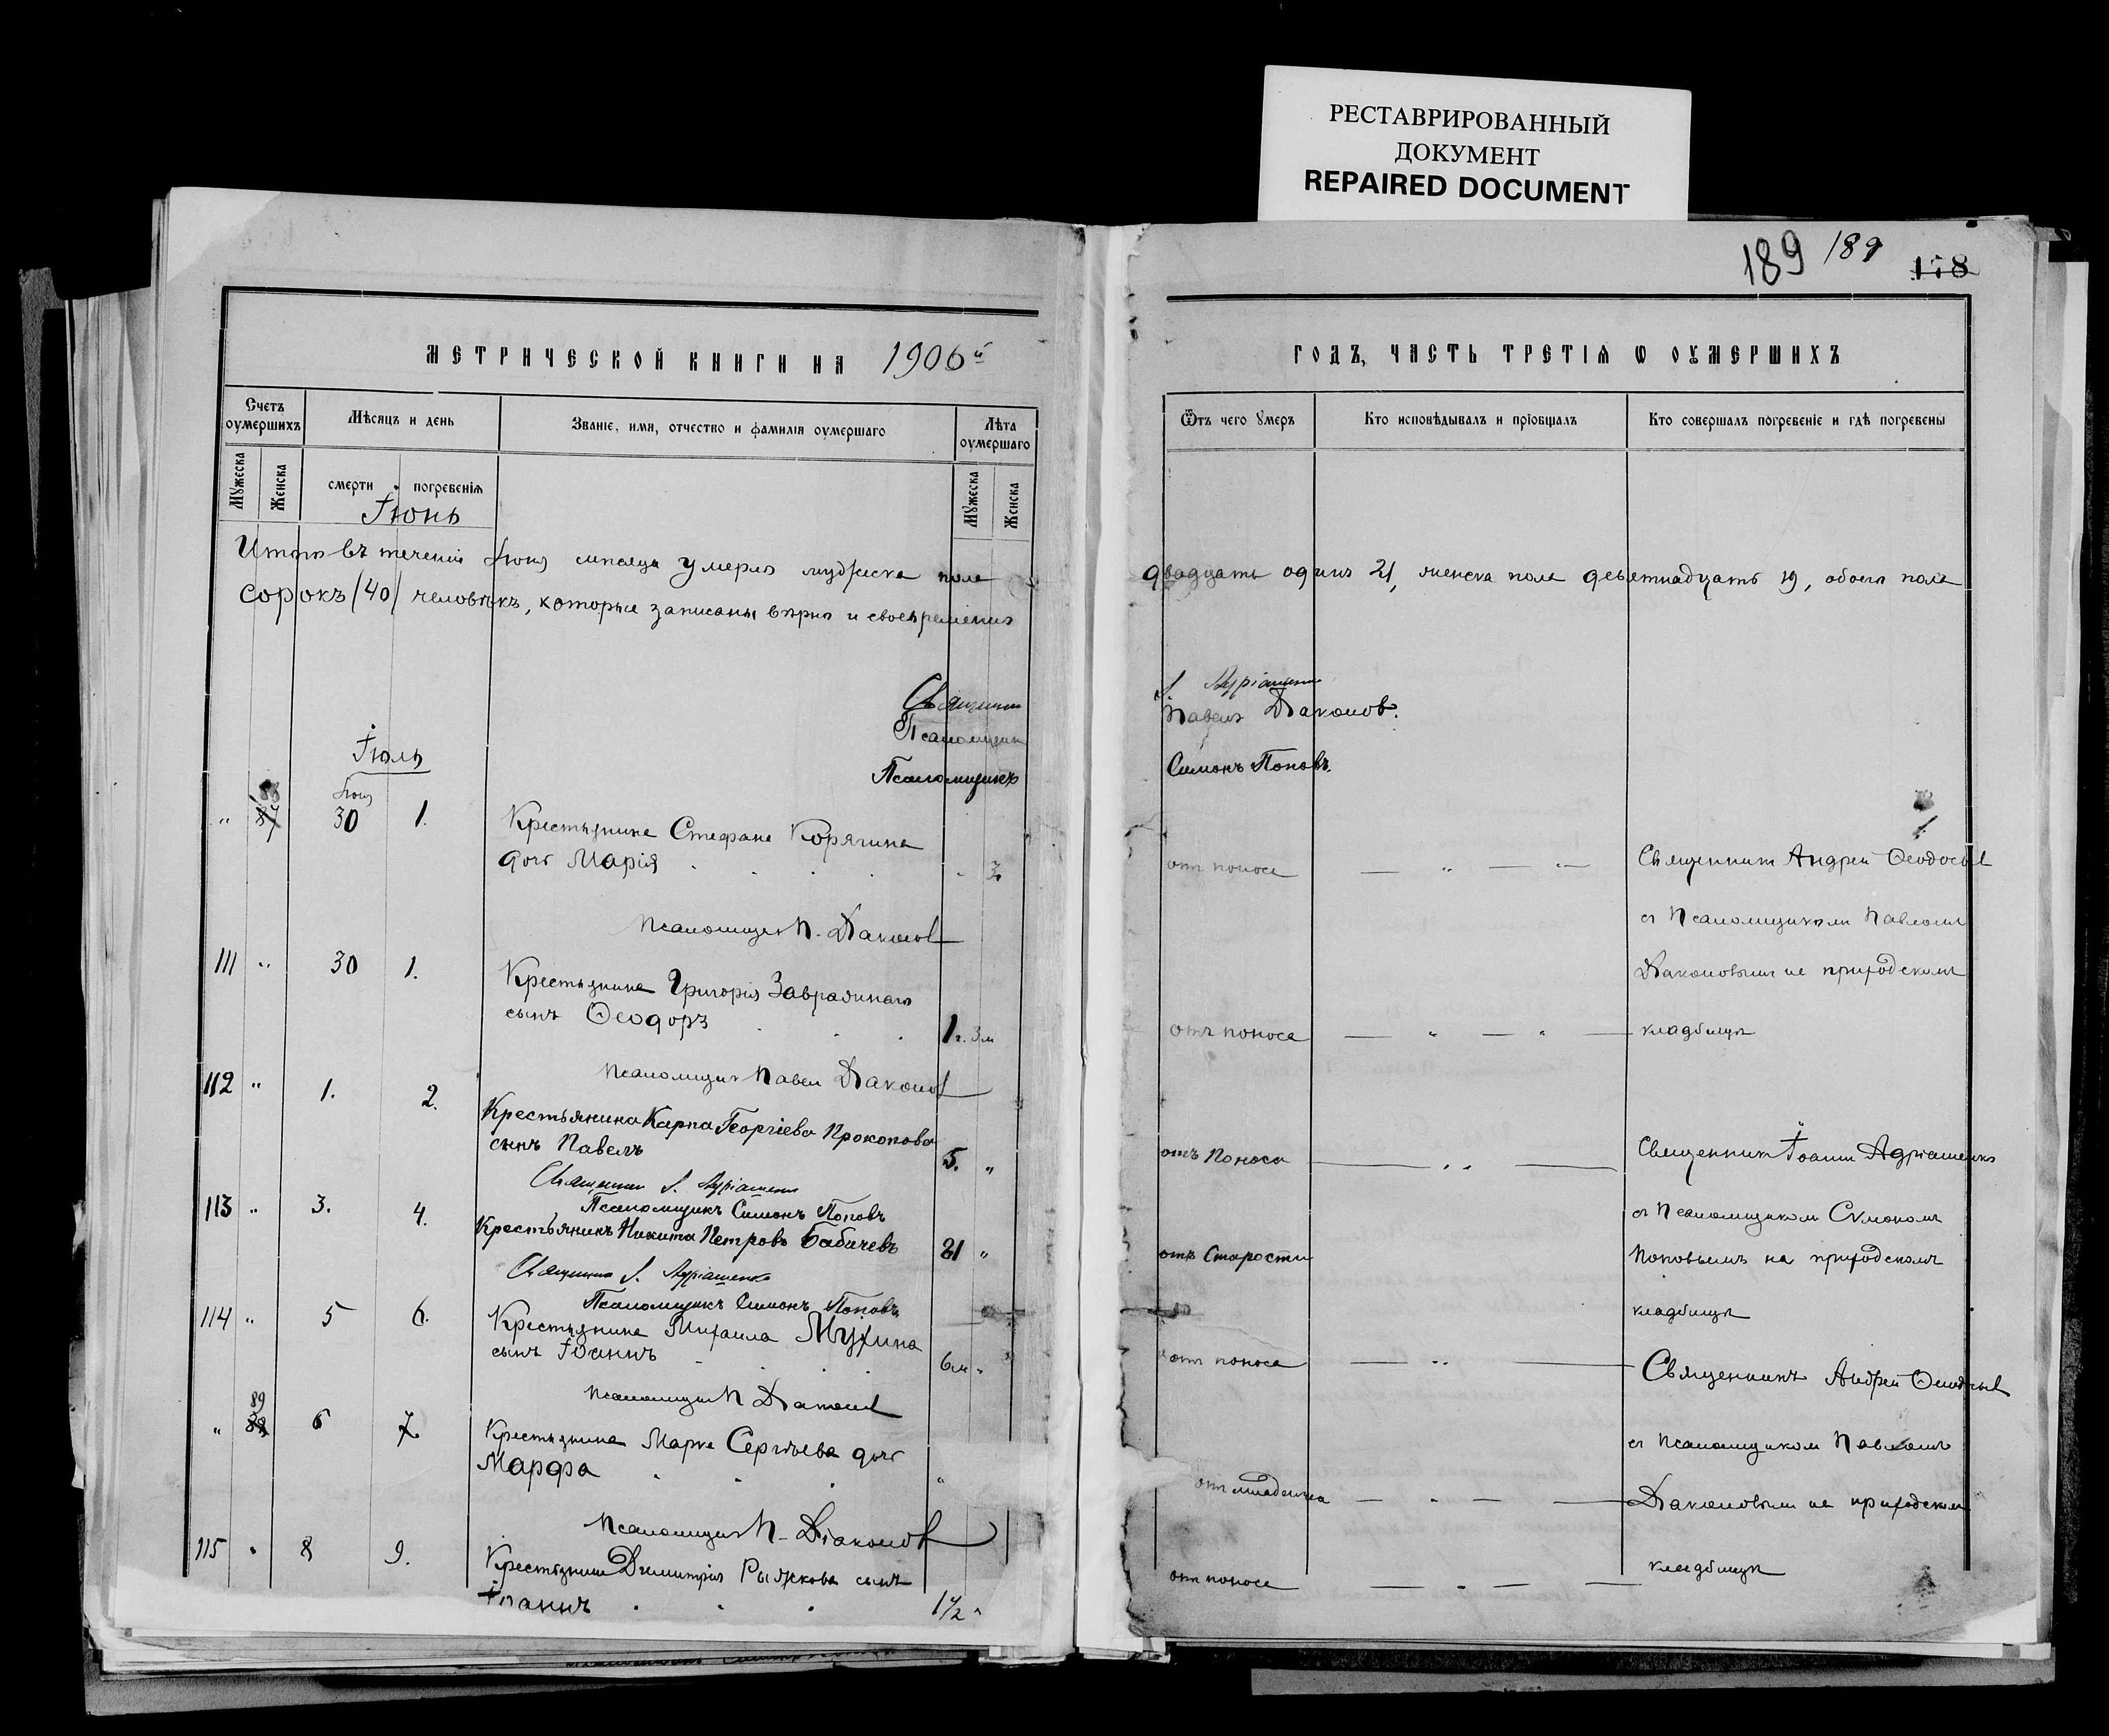 РЕСТАВРИРОВАННЫЙ
ДОКУМЕНТ
REPAIRED DOCUMENT
189 189 178
МЕТРИЧЕСКОЙ КНИГИ НА 1906й
ГОДЪ, ЧАСТЬ ТРЕТІѦ Ѡ ОУМЕРШИХЪ
Счетъ оумершихъ
Мѣсяцъ и день
Званіе, имя, отчество и фамилія оумершаго
Лѣта оумершаго
Ѿтъ чего умеръ
Кто исповѣдывалъ и пріобщалъ
Кто совершалъ погребеніе и гдѣ погребены
Мужеска
Женска
смерти
погребеніѧ
Мужеска
Женска
Іюнь
Итого въ теченіи Іюня мѣсяца умерло мужеска пола двадцать одинъ 21, женска пола девятнадцать 19, обоего пола
сорокъ /40/ человѣкъ, которые записаны вѣрно и своевременно
Священникъ І. Адріашенко
Псаломщикъ Павелъ Дьяконов.
Псаломщикъ Симонъ Поповъ.
Іюль
Іюня
" 88 87 30 1. Крестьянина Стефана Корягина
дочь Марія 3. отъ поноса — " — " — Священникъ Андрей Ѳеодосьев
съ Псаломщикомъ Павломъ
Псаломщикъ П. Дьяконов
111 " 30 1. Крестьянина Григорія
Дьяконовымъ на приходскомъ
сынъ Ѳеодоръ 1 г. 3 м отъ поноса — " — " — кладбищѣ
Псаломщикъ Павел Дьяконов
112 " 1. 2. Крестьянина Карпа Георгіева Прокопова
сынъ Павелъ 5. " отъ Поноса — " — Священникъ Іоаннъ Адріашенко
Священник І. Адріашенко
Псаломщикъ Симонъ Поповъ
съ Псаломщикомъ Сѵмономъ
113 " 3. 4. Крестьянинъ Никита Петровъ Бабичевъ 81 " отъ Старости Поповымъ на приходскомъ
Священник І. Адріашенко
Псаломщикъ Симонъ Поповъ
кладбищѣ
114 " 5 6. Крестьянина Михаила Мухина
сынъ Іоаннъ 6 м " отъ поноса — " — Священникъ Андрей Ѳеодосьев
Псаломщикъ П Дьяконов
" 89 88 6 7 Крестьянина Марка Сергѣева дочь
съ Псаломщиком Павломъ
Марфа " отъ младенчества — " — Дьяконовымъ на приходском
Псаломщикъ П. Діаконов
115 " 8 9. Крестьянина Димитрія Рыжкова сынъ
кладбищѣ
Іоаннъ 1 1/2 " отъ поноса — " —